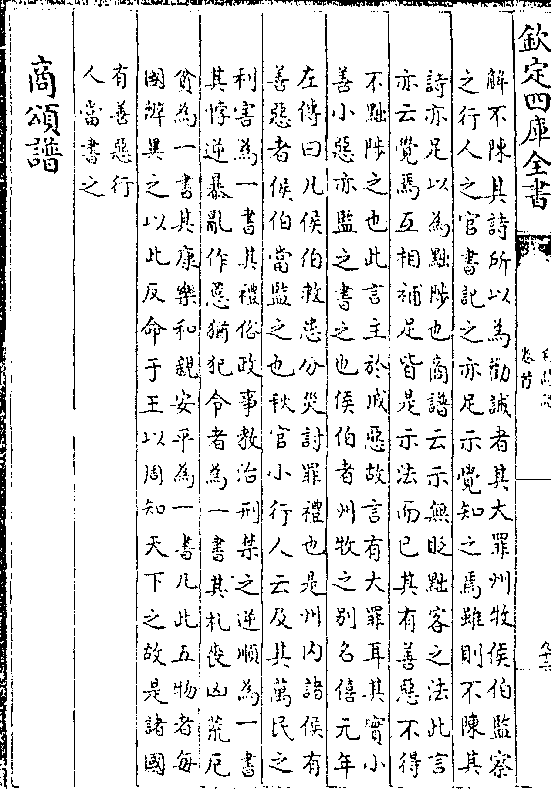 欽定四庫全書
解不陳其詩所以為勸誡者其大罪州牧侯伯監察
之行人之官書記之亦足示覺知之焉雖則不陳其
詩亦足以為黜陟也商譜云示無貶黜客之法此言
亦云覺焉互相補足皆是示法而已其有善惡不得
不黜陟之也此言主於戒惡故言有大罪耳其實小
善小惡亦監之書之也侯伯者州牧之别名僖元年
左傳曰凡侯伯救患分災討罪禮也是州内諸侯有
善惡者侯伯當監之也秋官小行人云及其萬民之
利害為一書其禮俗政事教治刑禁之逆順為一書
其悖逆暴亂作慝猶犯令者為一書其札喪凶荒厄
貧為一書其康樂和親安平為一書凡此五物者每
國辨異之以此反命于王以周知天下之故是諸國
有善惡行
人當書之
商頌譜